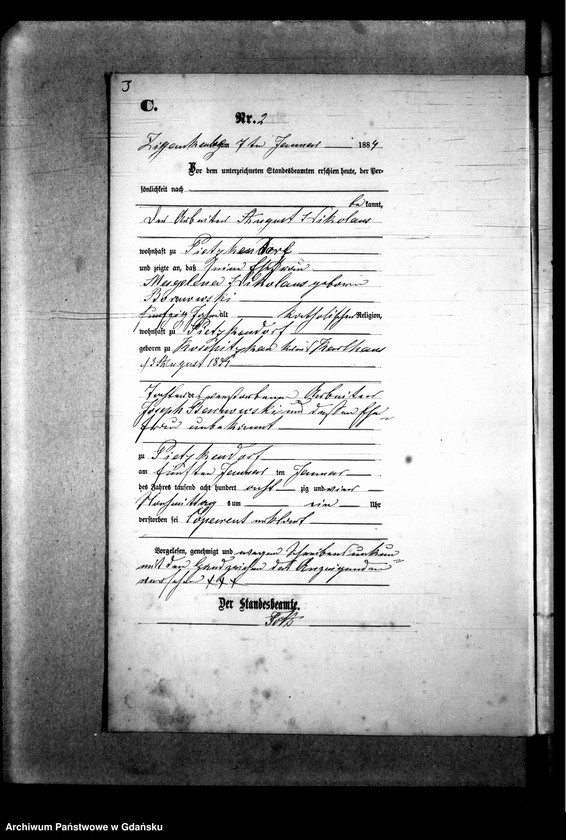 3
C.
Nr. 2
7ten Januar 1884
Vor dem unterzeichneten Standesbeamten erschien heute, der Per-
sönlichkeit nach
be kannt,
der Arbeiter August Nikolaus
wohnhaft zu Pietzkendorf
und zeigte an, daß seine Ehefrau
Nikolaus geboren
Borowski
fünfzig Jahr alt katholischer Religion,
wohnhaft zu Pietzkendorf
geboren zu Kreis Karthaus
August
Tochter des verstorbenen Arbeiter
Joseph Borowski und dessen Ehe-
frau unbekannt
zu Pietzkendorf
am fünften Januar ten Januar
des Jahres tausend acht hundert acht zig und vier
Nachmittag s um ein Uhr
verstorben sei
Vorgelesen, genehmigt und wegen Schreibensunkun-
mit den Handzeichen des Anzeigenden
versehen +++
Der Standesbeamte.
Archiwum Państwowe w Gdańsku